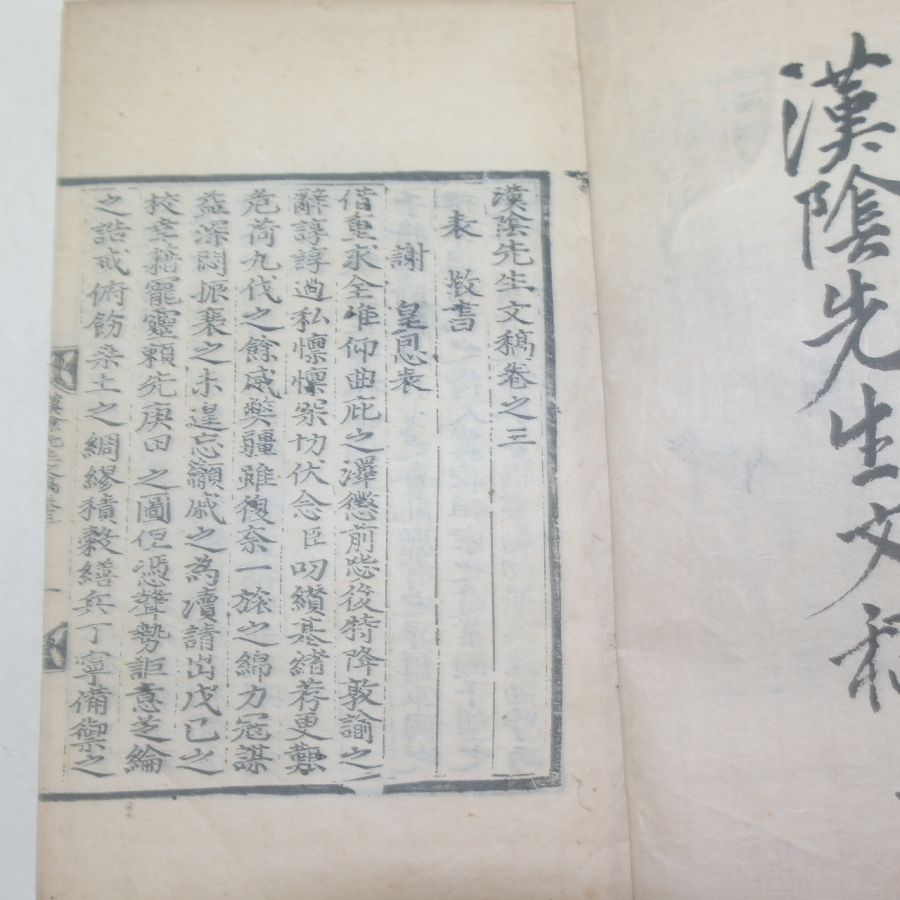 漢陰先生文稿
漢陰先生文稿卷之三
表 敎書
謝 皇恩表
借重求全唯仰曲庇之澤懲前毖後特降敦諭之
辭諄諄過私懍懍深切伏念臣叨纘基緖荐更艱
危荷九代之餘威獘疆雖復奈一旅之綿力寇謀
益深悶振裒之未遑忘籲戚之為瀆請出戊己之
校幸藉寵靈賴先庚田之圖但憑聲勢詎意芝綸
之誥戒俯飭桑土之綢繆積穀繕兵丁寧備禦之
漢陰先生文稿卷三 一